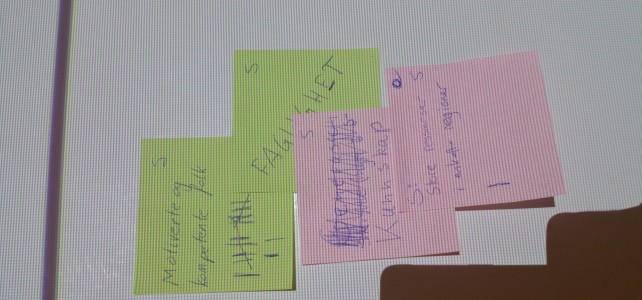 S
Motiverte og
kompetente folk
S
FAGLIGHET
S
Kunnskap
S
S:
Store ressurser
i enkelte regioner